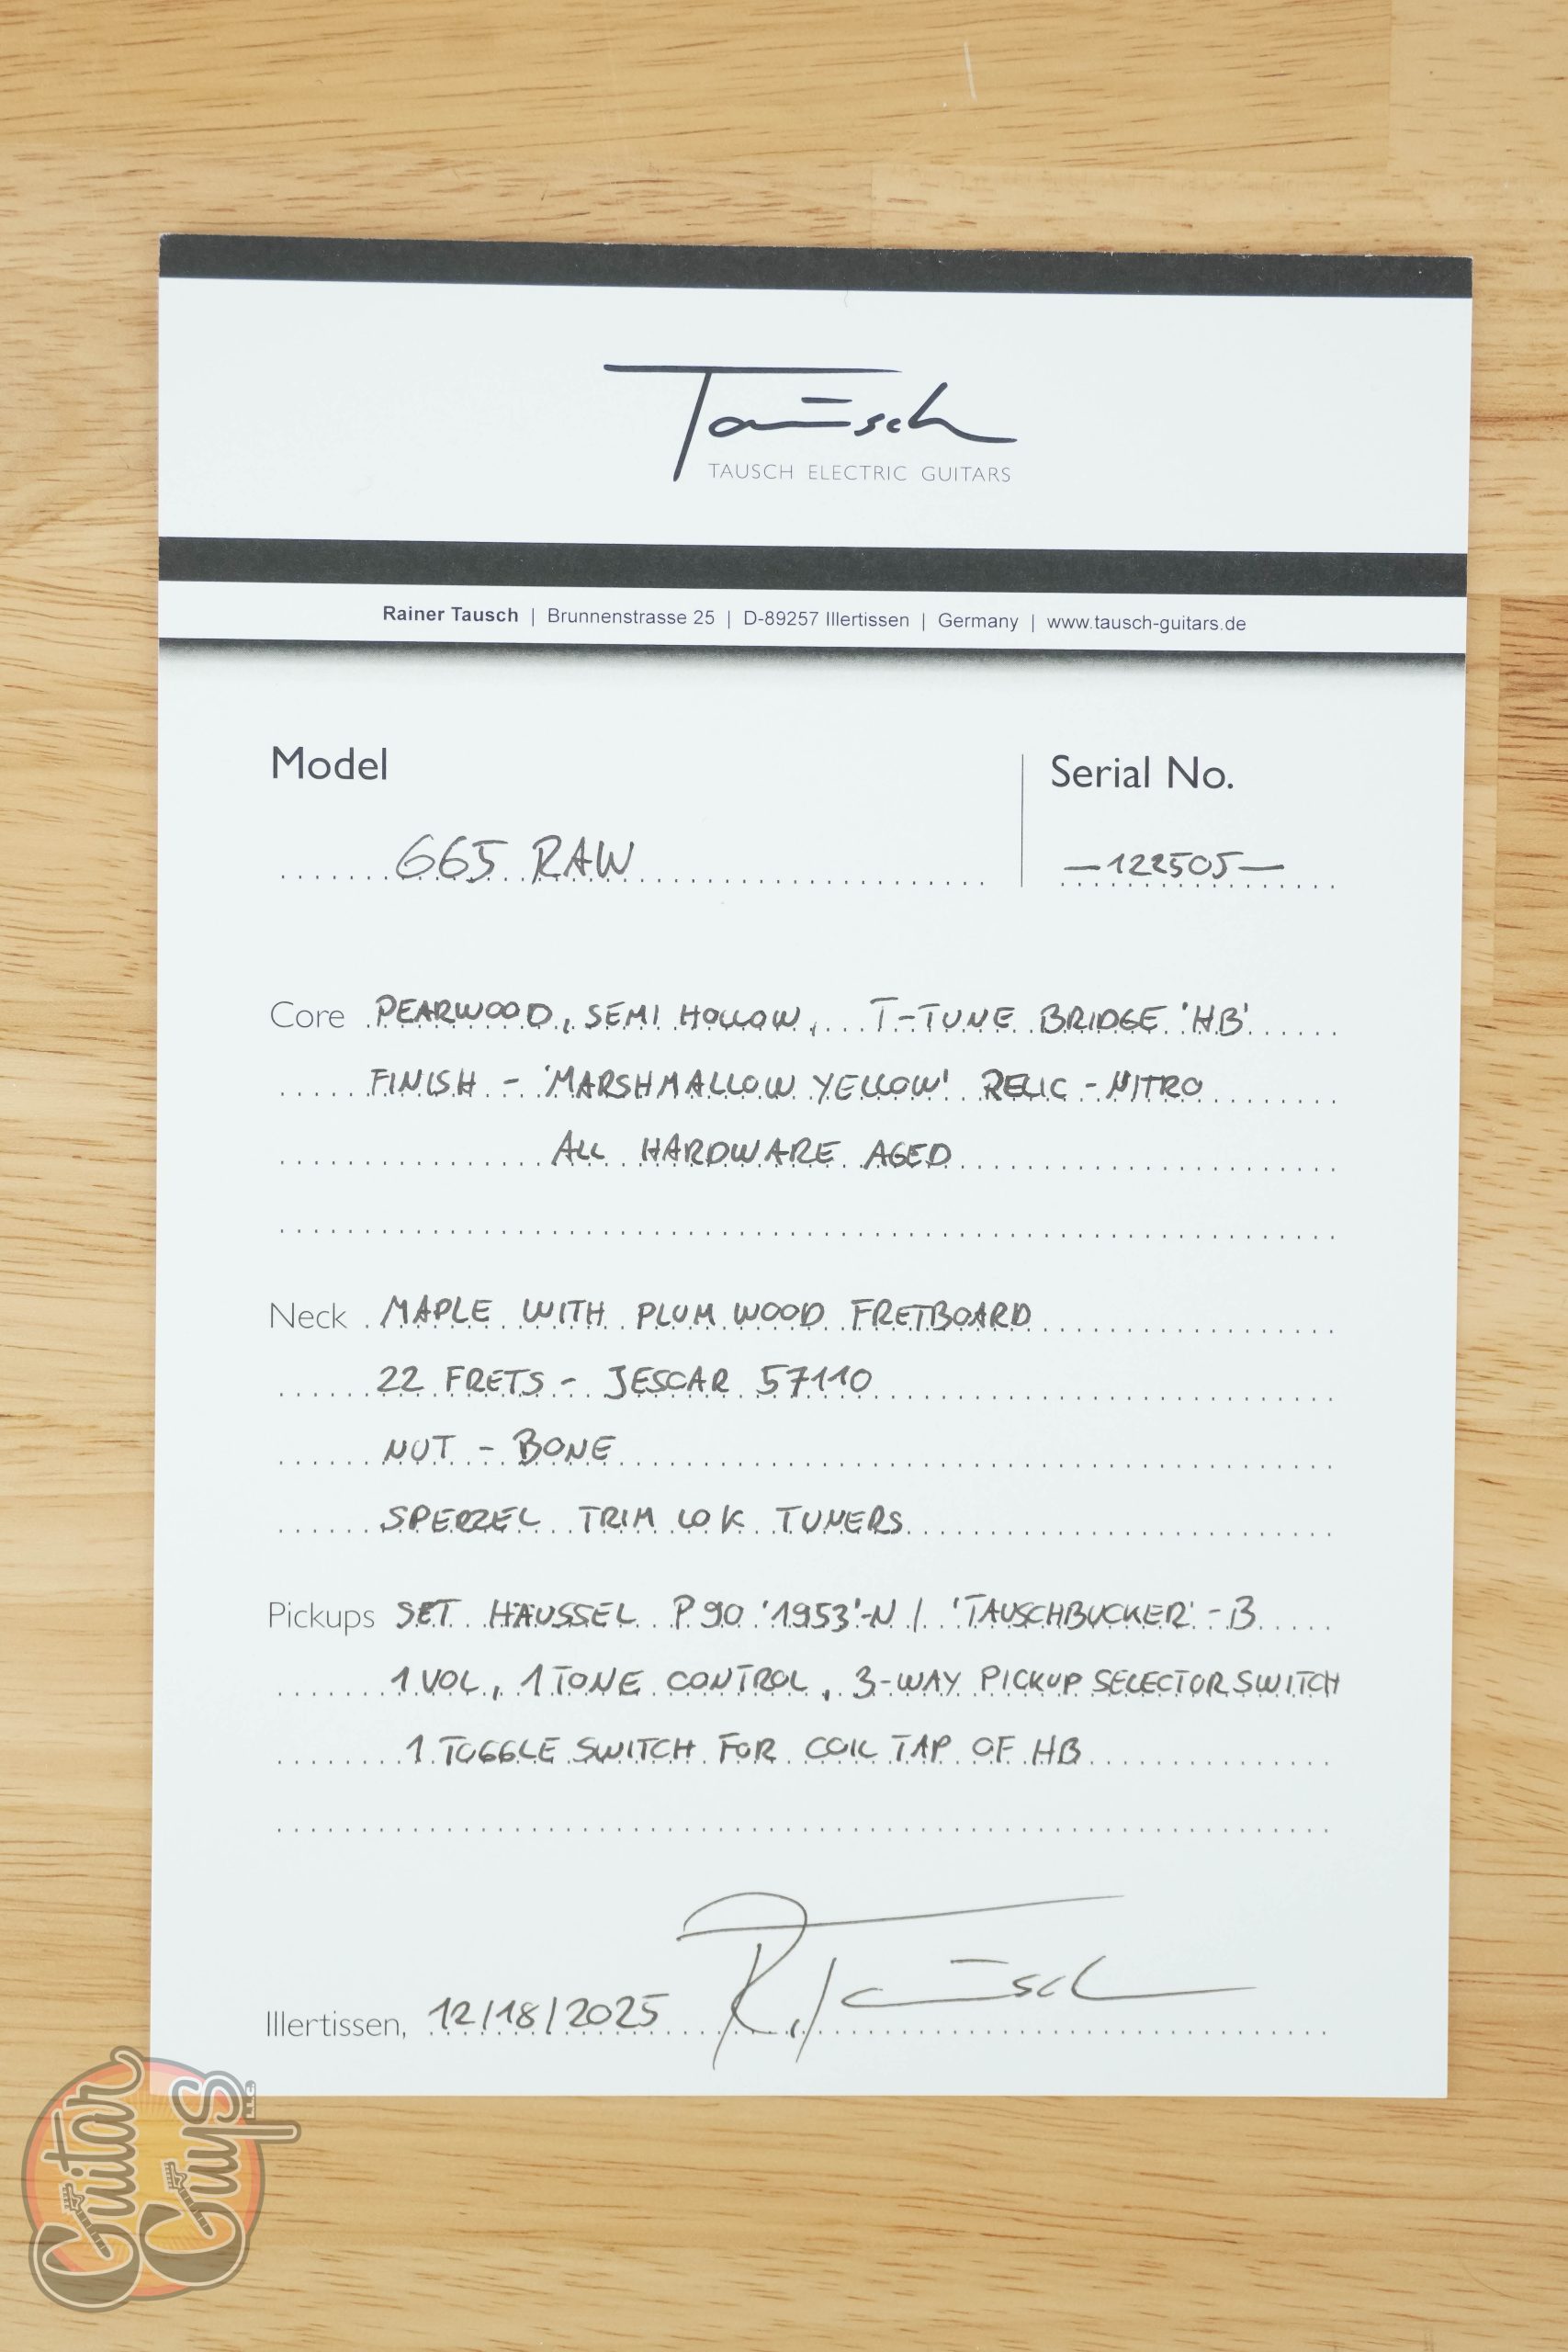 Tausch
TAUSCH ELECTRIC GUITARS
Rainer Tausch | Brunnenstrasse 25 | D-89257 Illertissen | Germany | www.tausch-guitars.de
Model
Serial No.
665 RAW
—122505—
Core PEARWOOD, SEMI HOLLOW, T-TUNE BRIDGE 'HB'
FINISH - 'MARSHMALLOW YELLOW' RELIC - NITRO
ALL HARDWARE AGED
Neck MAPLE WITH PLUM WOOD FRETBOARD
22 FRETS - JESCAR 57110
NUT - BONE
SPERZEL TRIM LOK TUNERS
Pickups SET HÄUSSEL P90 '1953'-N / 'TAUSCHBUCKER' - B
1 VOL, 1 TONE CONTROL, 3-WAY PICKUP SELECTOR SWITCH
1 TOGGLE SWITCH FOR COIL TAP OF HB
Illertissen, 12/18/2025 R. Tausch
Guitar Guys LLC.